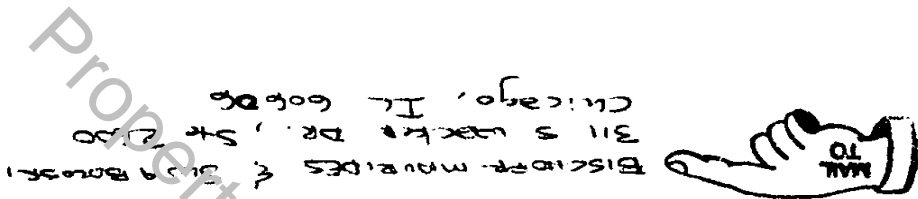 MAIL
TO
BISCHOFF MAURIDES &
311 S WACKER DR., Ste
Chicago, IL 60606
Propert